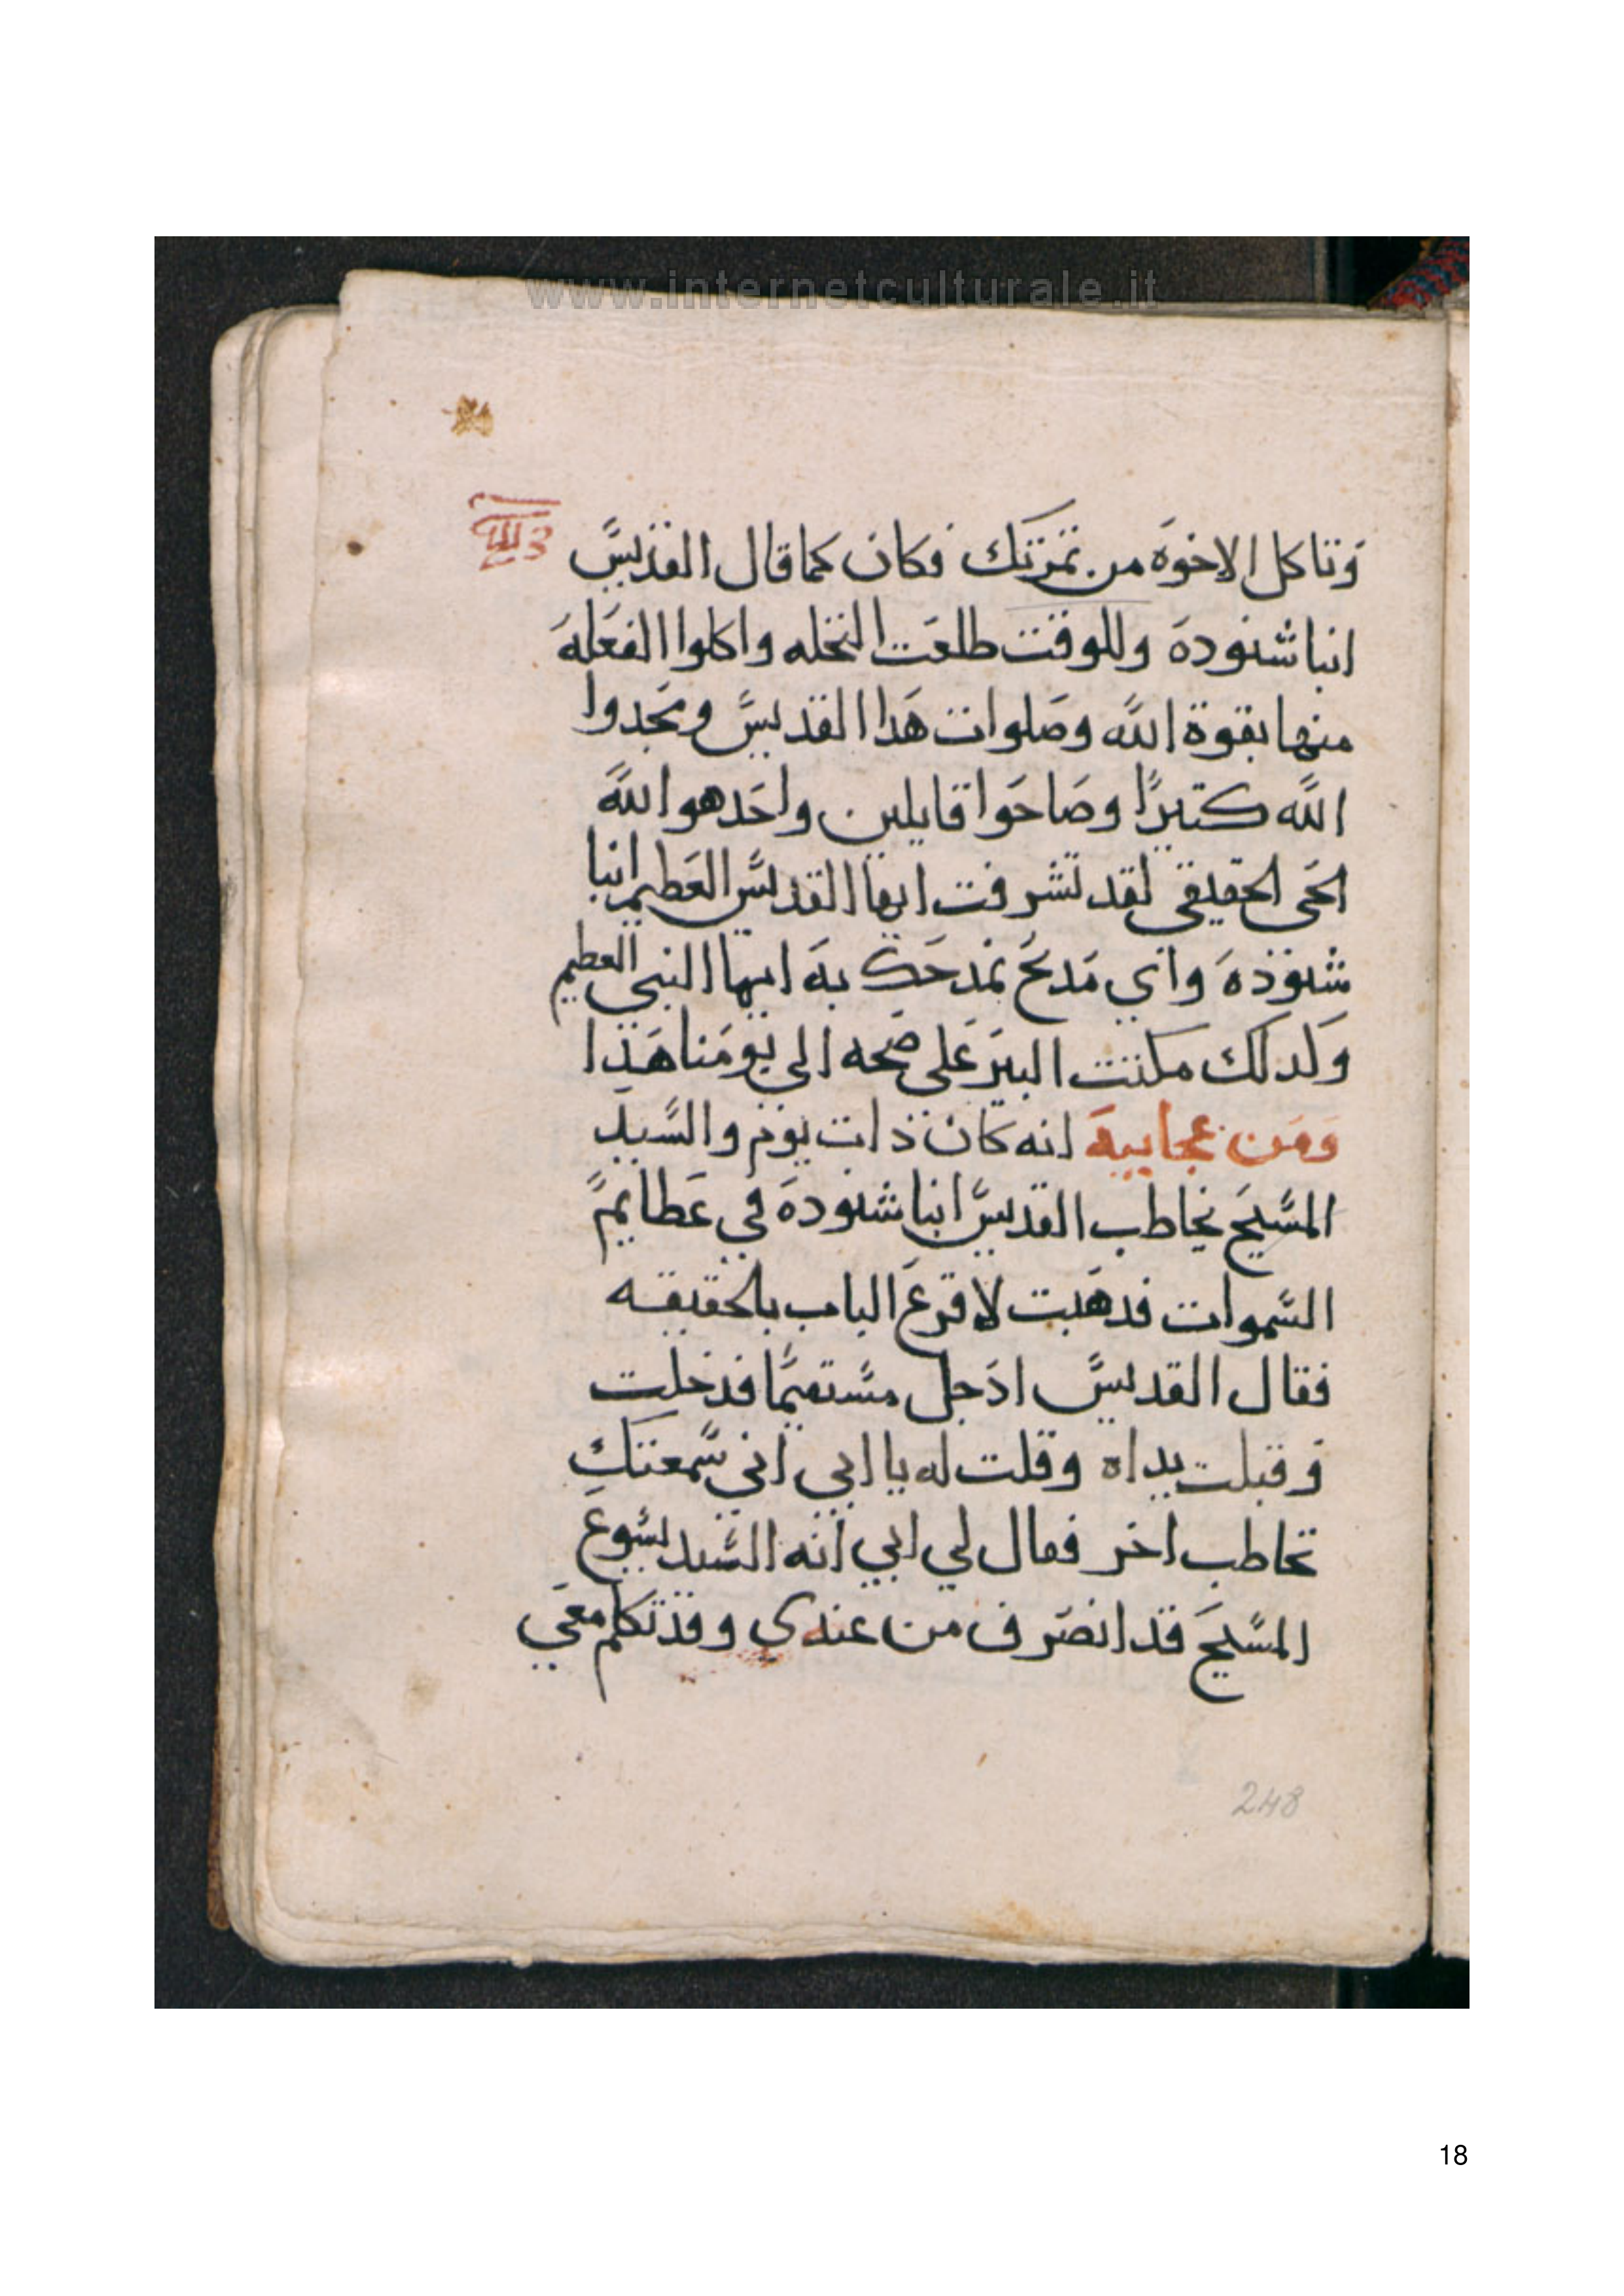 www.internetculturale.it
وتاكل الاخوة من تمرتك فكان كما قال القديس
انبا شنودة وللوقت طلعت النخله واكلوا الفعلة
منها بقوة الله وصلوات هدا القديس ومجدوا
الله كتيرًا وصاحوا قايلين واحد هو الله
الحى الحقيقي لقد تشرفت ايها القديس العطيم انبا
شنوذة واي مدح نمدحك به ايها النبي العطيم
ولدلك مكتت البير على صحه الي يومنا هذا
ومن عجايبة انه كان ذات يوم والسيد
المسيح يخاطب القديس انبا شنودة في عطايم
السموات فدهبت لاقرع الباب بالحقيقه
فقال القديس ادخل مستقيما فدخلت
وقبلت يداه وقلت له يا ابي اني سمعتك
تخاطب اخر فقال لي ابي انه السيد يسوع
المسيح قد انصرف من عندي وقد تكلم معي
248
18